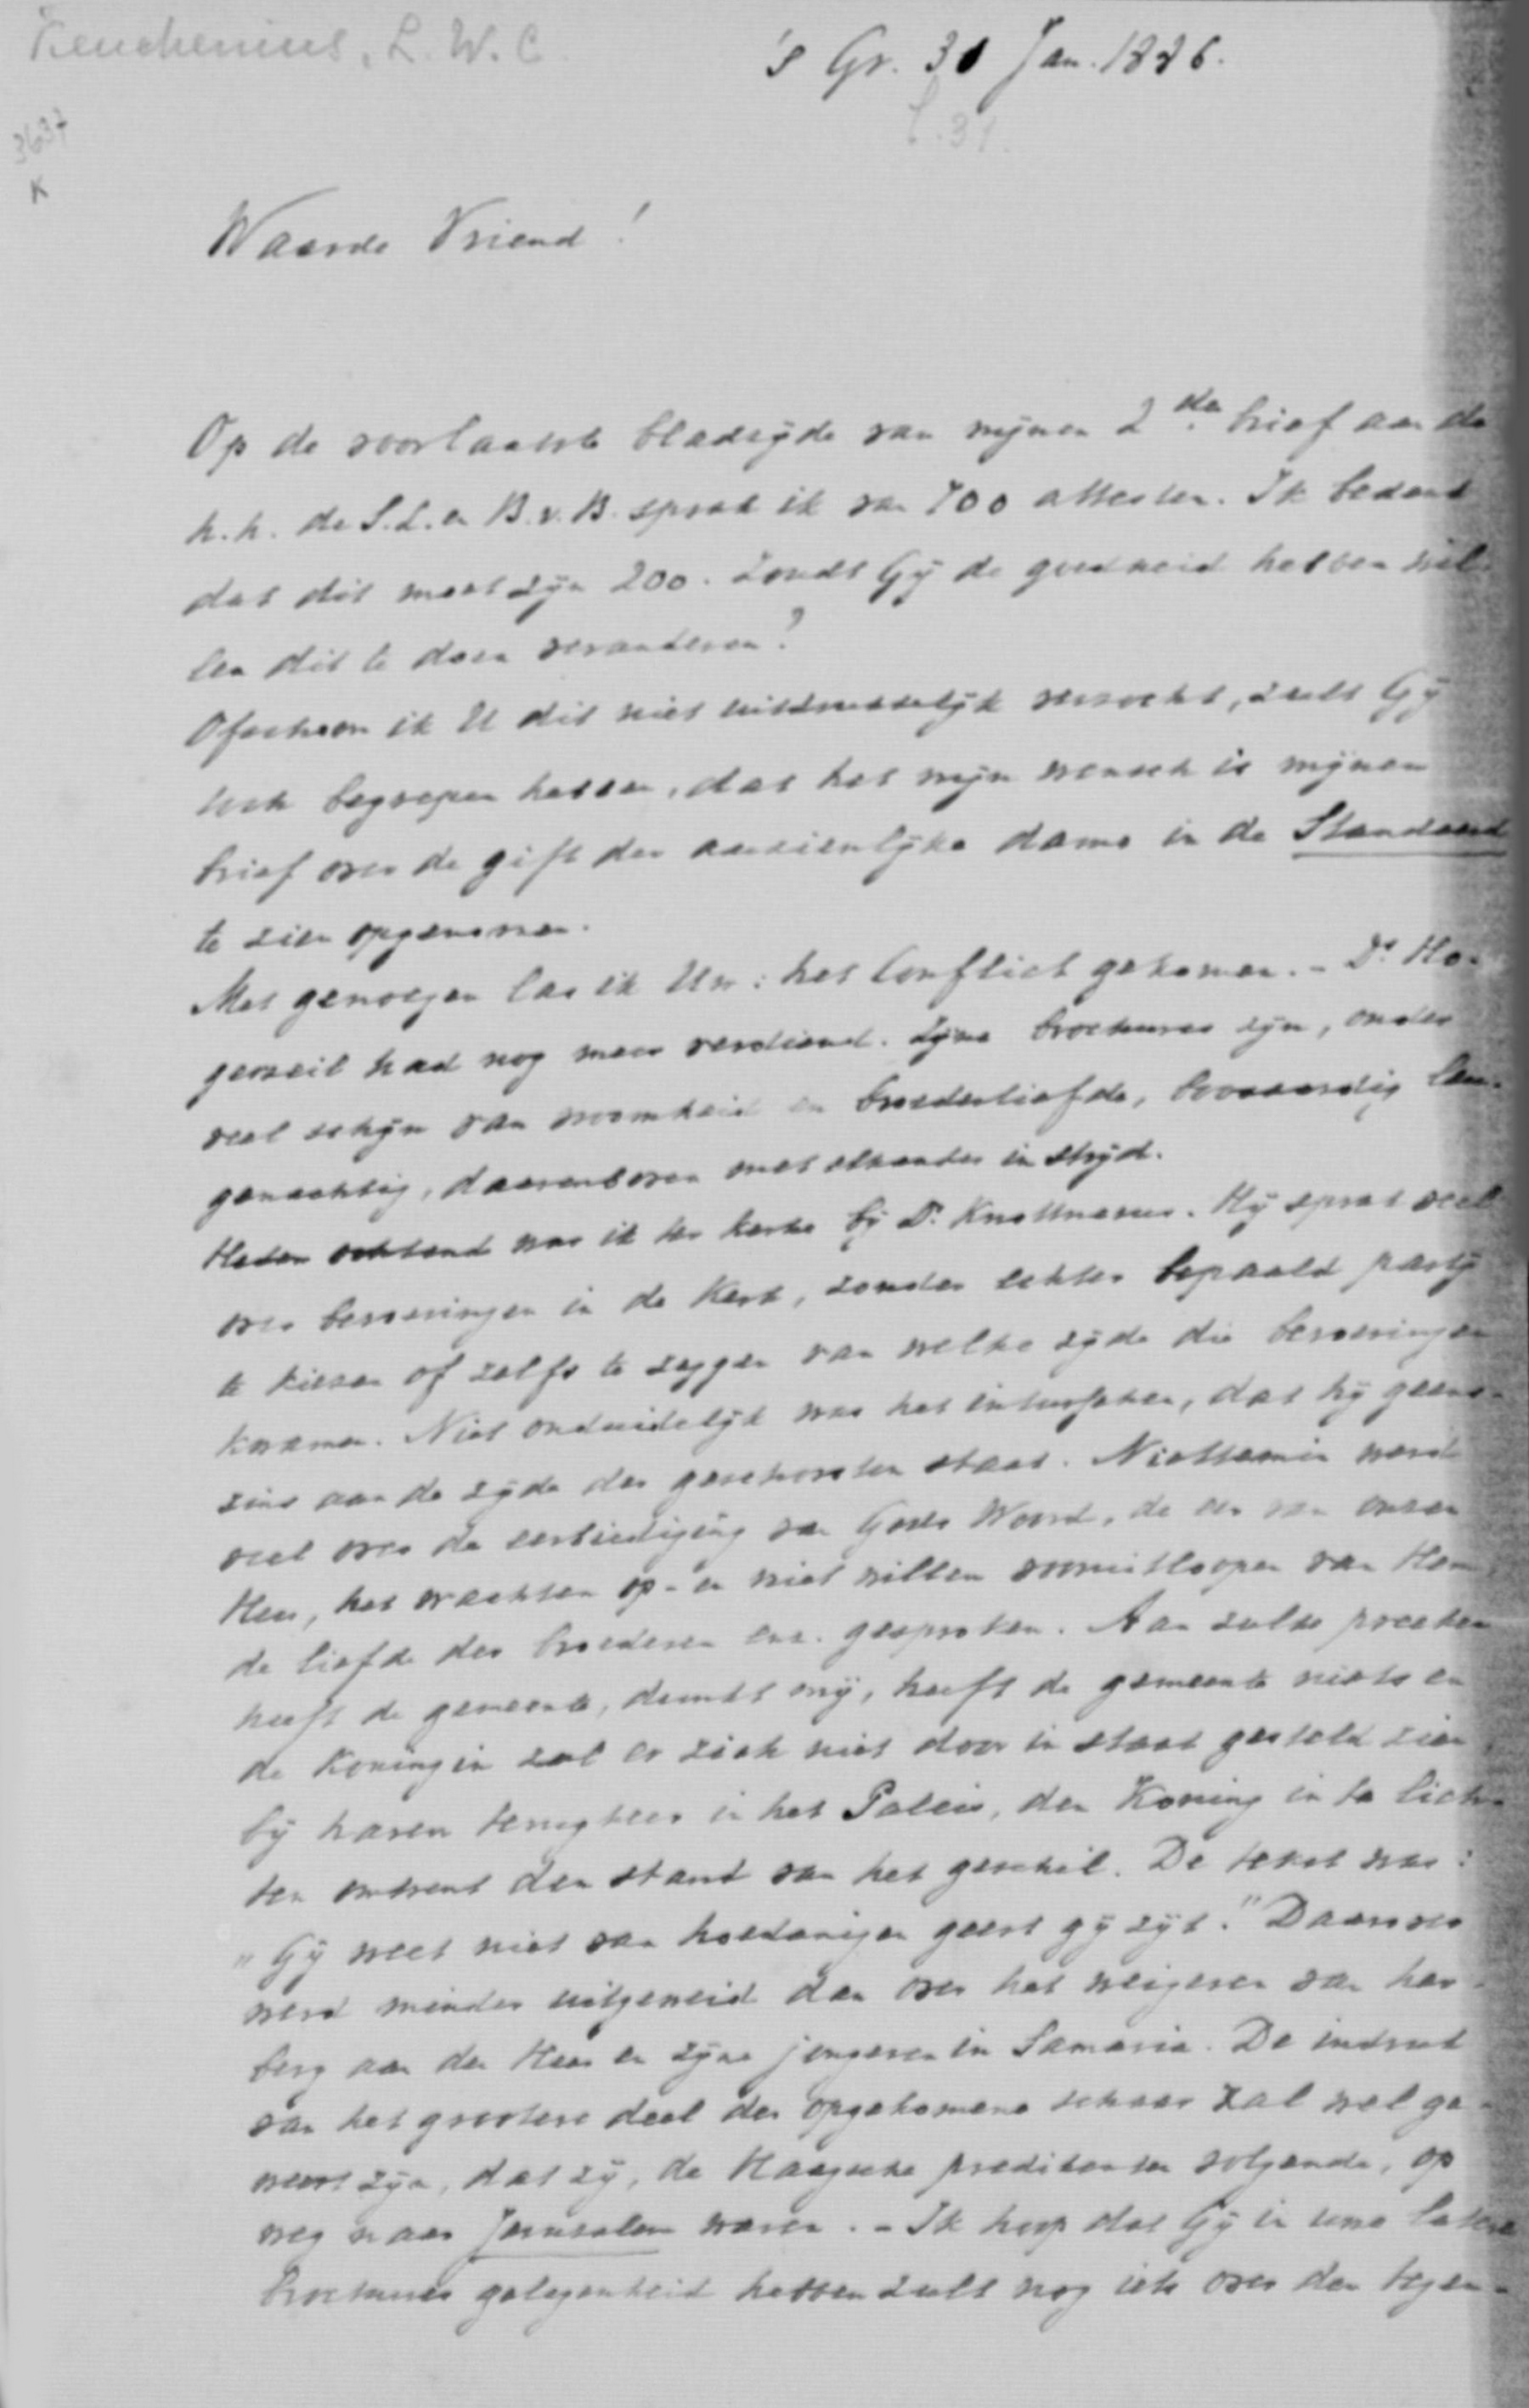 Keuchenius, L. W. C.
's Gr. 31 Jan. 1886.
b.31.
3637
K
Waarde Vriend!
Op de voorlaatste bladzyde van mynen 2den brief aan de
h.h. de S.L. en B.v.B. sprak ik van 700 attesten. Ik bedenk
dat dit moet zyn 200. Zoudt Gy de goedheid hebben wil-
len dit te doen veranderen?
Ofschoon ik U dit niet uitdrukkelyk verzocht, zult Gy
toch begrepen hebben, dat het myn wensch is mynen
brief over de gift der aanzienlyke dame in de Standaard
te zien opgenomen.
Met genoegen las ik Uw: het Conflict gekomen. - Ds Ho-
gerzeil had nog meer verdiend. Zyne brochures zyn, onder
veel schyn van vroomheid en broederliefde, boosaardig leu-
genachtig, daarenboven met elkander in stryd.
Heden ochtend was ik ter kerke by Ds Knottnerus. Hy sprak veel
over beroeringen in de Kerk, zonder echter bepaald party
te kiezen of zelfs te zeggen van welke zyde die beroeringen
kwamen. Niet onduidelyk was het intusschen, dat hy geens-
zins aan de zyde der geschorsten staat. Niettemin werd
veel over de eerbiediging van Gods Woord, de eer van onzen
Heer, het wachten op - en niet willen vooruitloopen van Hem
de liefde der broederen enz. gesproken. Aan zulke preeken
heeft de gemeente, dunkt my, heeft de gemeente niets en
de Koningin zal er zich niet door in staat gesteld zien,
by haren terugkeer in het Paleis, den Koning in te lich-
ten omtrent den stand van het geschil. De tekst was:
"Gy weet niet van hoedanigen geest gy zyt." Daarover
werd minder uitgeweid dan over het weigeren van her-
berg aan den Heer en zyne jongeren in Samaria. De indruk
van het grootere deel der opgekomene schaar zal wel ge-
weest zyn, dat zy, de Haagsche predikanten volgende, op
weg naar Jerusalem waren. - Ik hoop dat Gy in uwe latere
brochures gelegenheid hebben zult nog iets over den tegen-